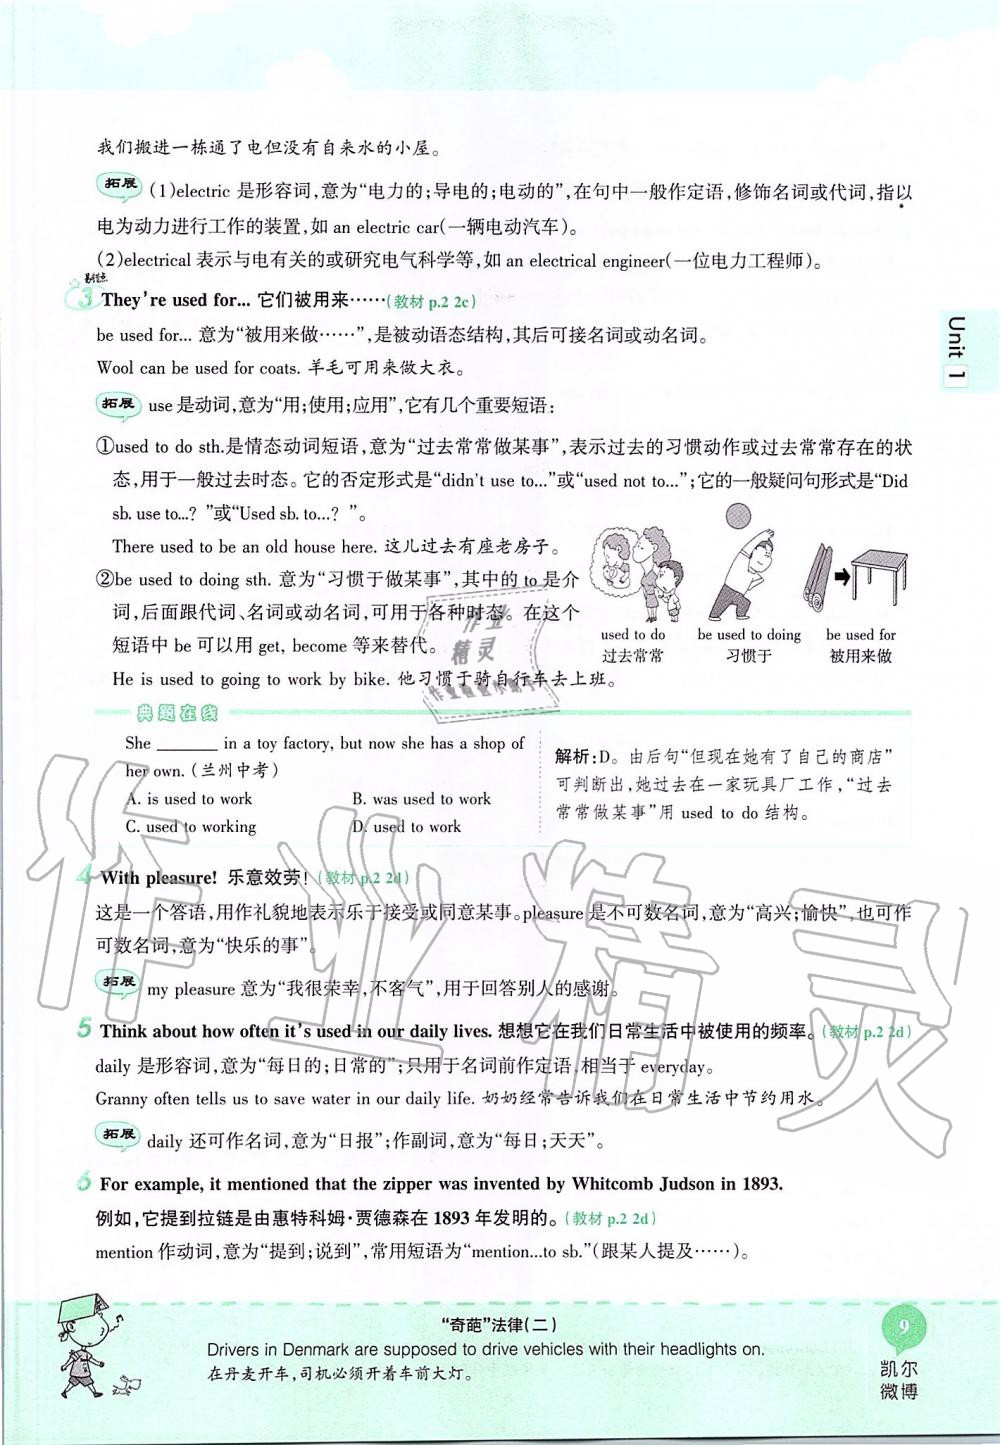 我们搬进一栋通了电但没有自来水的小屋。
拓展 (1)electric 是形容词,意为“电力的;导电的;电动的”,在句中一般作定语,修饰名词或代词,指以
电为动力进行工作的装置,如 an electric car(一辆电动汽车)。
(2)electrical 表示与电有关的或研究电气科学等,如 an electrical engineer(一位电力工程师)。
易错点
3 They're used for... 它们被用来……(教材 p.2 2c)
be used for... 意为“被用来做……”,是被动语态结构,其后可接名词或动名词。
Wool can be used for coats. 羊毛可用来做大衣。
拓展 use 是动词,意为“用;使用;应用”,它有几个重要短语:
①used to do sth.是情态动词短语,意为“过去常常做某事”,表示过去的习惯动作或过去常常存在的状
态,用于一般过去时态。它的否定形式是“didn't use to...”或“used not to...”;它的一般疑问句形式是“Did
sb. use to...? ”或“Used sb. to...? ”。
There used to be an old house here. 这儿过去有座老房子。
②be used to doing sth. 意为“习惯于做某事”,其中的 to 是介
词,后面跟代词、名词或动名词,可用于各种时态。在这个
短语中 be 可以用 get, become 等来替代。
He is used to going to work by bike. 他习惯于骑自行车去上班。
used to do be used to doing be used for
过去常常 习惯于 被用来做
典题在线
She ______ in a toy factory, but now she has a shop of
her own. (兰州中考)
A. is used to work B. was used to work
C. used to working D. used to work
解析:D。由后句“但现在她有了自己的商店”
可判断出,她过去在一家玩具厂工作,“过去
常常做某事”用 used to do 结构。
4 With pleasure! 乐意效劳!(教材 p.2 2d)
这是一个答语,用作礼貌地表示乐于接受或同意某事。pleasure 是不可数名词,意为“高兴;愉快”,也可作
可数名词,意为“快乐的事”。
拓展 my pleasure 意为“我很荣幸,不客气”,用于回答别人的感谢。
5 Think about how often it's used in our daily lives. 想想它在我们日常生活中被使用的频率。(教材 p.2 2d)
daily 是形容词,意为“每日的;日常的”;只用于名词前作定语,相当于 everyday。
Granny often tells us to save water in our daily life. 奶奶经常告诉我们在日常生活中节约用水。
拓展 daily 还可作名词,意为“日报”;作副词,意为“每日;天天”。
6 For example, it mentioned that the zipper was invented by Whitcomb Judson in 1893.
例如,它提到拉链是由惠特科姆·贾德森在 1893 年发明的。(教材 p.2 2d)
mention 作动词,意为“提到;说到”,常用短语为“mention...to sb.”(跟某人提及……)。
“奇葩”法律(二)
Drivers in Denmark are supposed to drive vehicles with their headlights on.
在丹麦开车,司机必须开着车前大灯。
9
凯尔
微博
Unit 1
作业
精灵
作业检查小助手
作业精灵